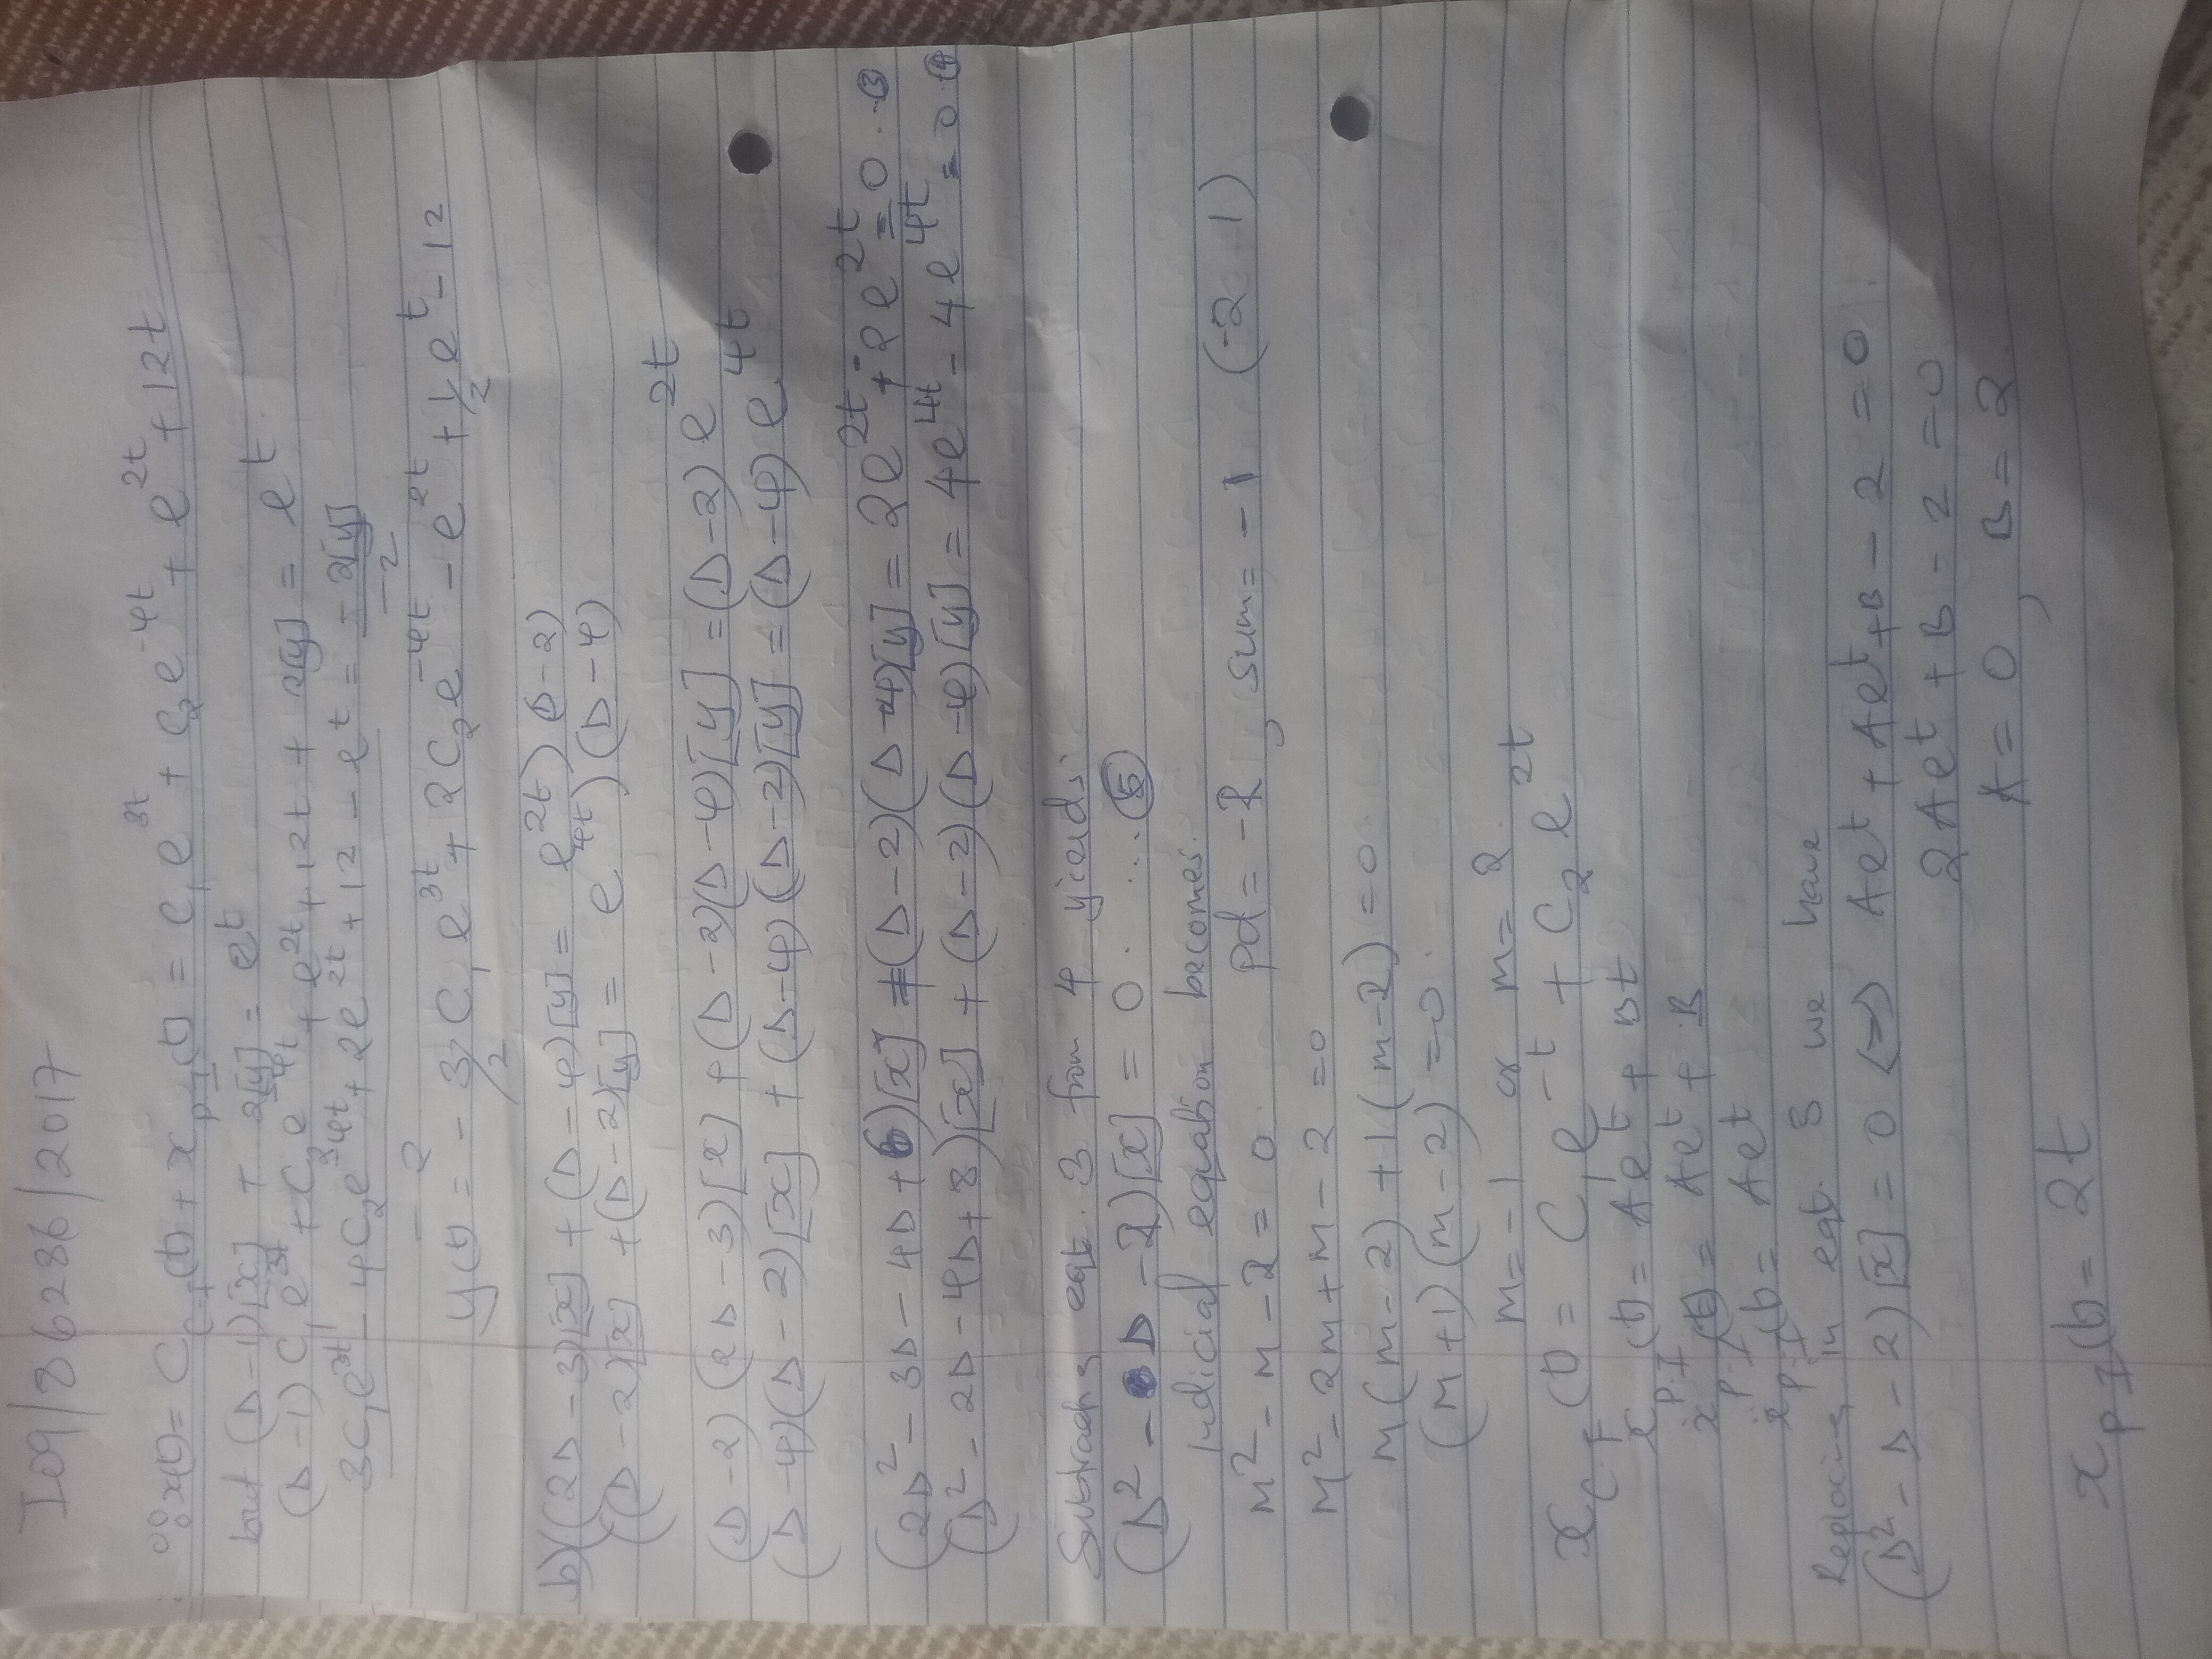 I09/86286/2017
∴ x(t) = C_{C.F}(t) + x_{P.I}(t) = C₁e^{3t} + C₂e^{-4t} + e^{2t} + 12t
but (D-1)[x] + 2[y] = e^t
(D-1) C₁e^{3t} + C₂e^{-4t} + e^{2t} + 12t + 2[y] = e^t
3C₁e^{3t} - 4C₂e^{-4t} + 2e^{2t} + 12 - e^t = -2[y]
-2 -2
y(t) = -3/2 C₁e^{3t} + 2C₂e^{-4t} - e^{2t} + 1/2 e^t - 12
b) ((2D-3)[x] + (D-4)[y] = e^{2t}) (D-2)
((D-2)[x] + (D-2)[y] = e^{4t}) (D-4)
(D-2)(2D-3)[x] + (D-2)(D-4)[y] = (D-2) e^{2t}
(D-4)(D-2)[x] + (D-4)(D-2)[y] = (D-4) e^{4t}
(2D² - 3D - 4D + 6)[x] + (D-2)(D-4)[y] = 2e^{2t} - 2e^{2t} = 0 ... ③
(D² - 2D - 4D + 8)[x] + (D-2)(D-4)[y] = 4e^{4t} - 4e^{4t} = 0 ④
Subtracting eqt. 3 from 4 yields:
(D² - D - 2)[x] = 0 . ... ⑤
Indicial equation becomes.
m² - m - 2 = 0 pd = -2, sum = -1 (-2 1)
m² - 2m + m - 2 = 0
m(m-2) + 1(m-2) = 0
(m+1)(m-2) = 0.
m = -1 or m = 2.
x_{C.F}(t) = C₁e^{-t} + C₂e^{2t}
x_{P.I}(t) = Ae^t + Bt
ẋ_{P.I}(t) = Ae^t + B
ẍ_{P.I}(t) = Ae^t
Replacing in eqt. 5 we have
(D² - D - 2)[x] = 0 <=> Ae^t + Ae^t + B - 2 = 0.
2Ae^t + B - 2 = 0
A = 0, B = 2.
x_{P.I}(t) = 2t